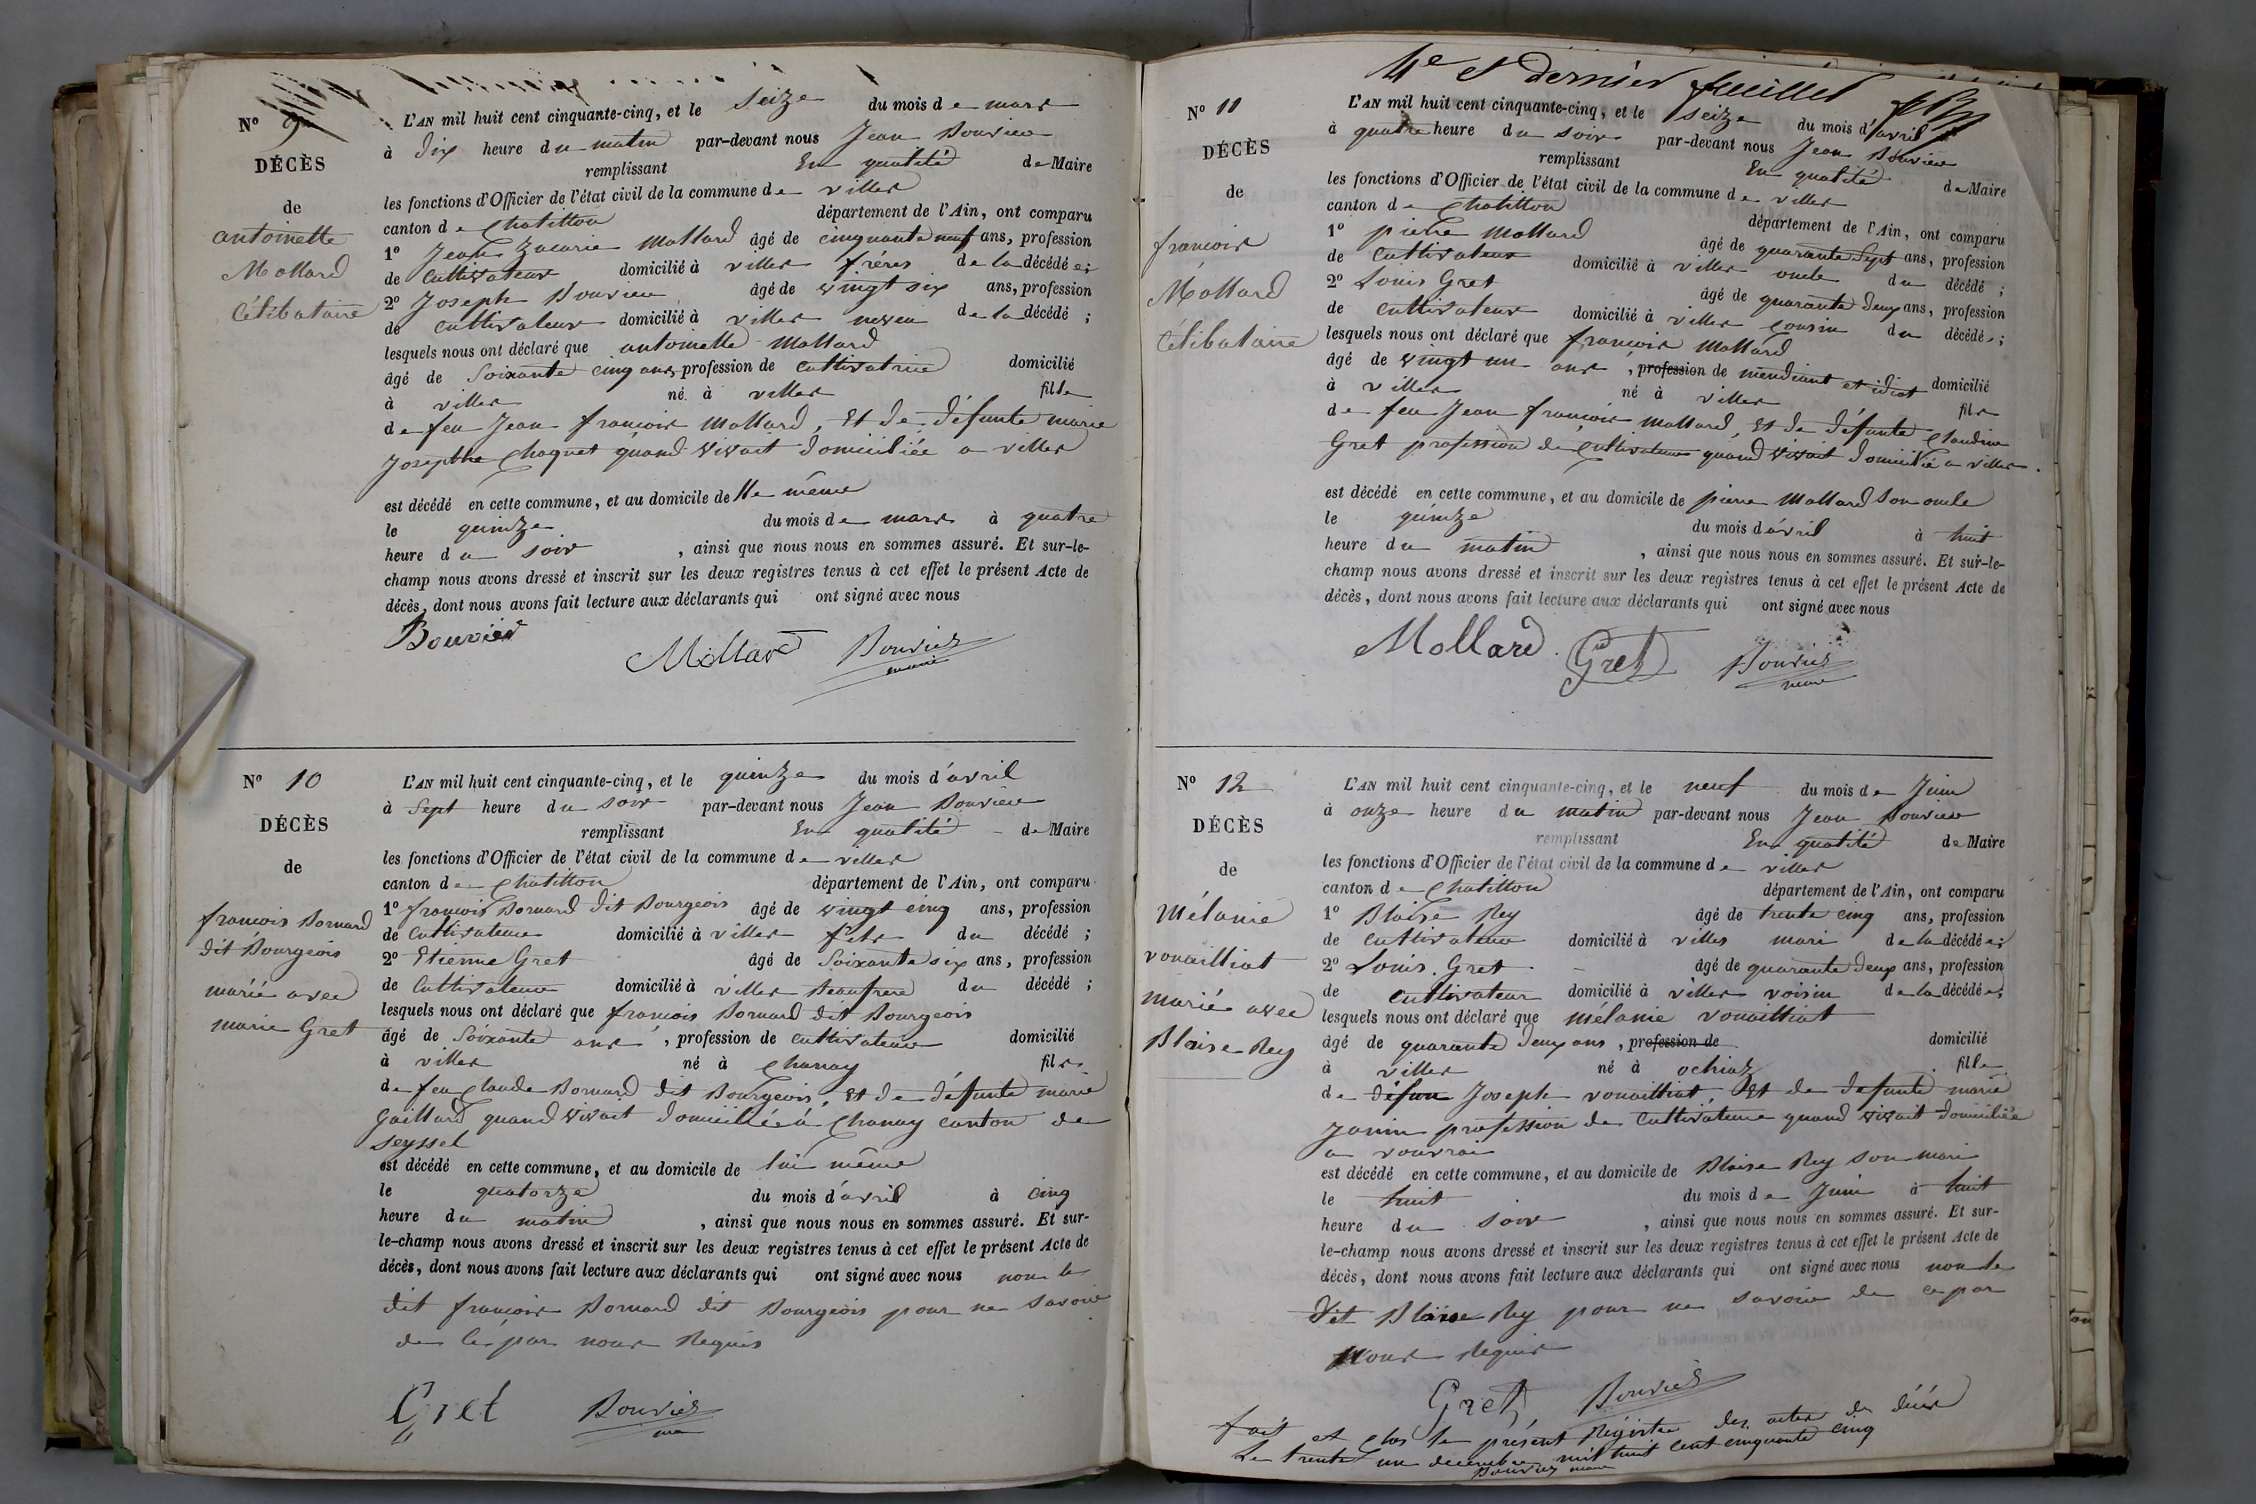 N° 9
DÉCÈS
de
antoinette
Mollard
Célibataire
L'AN mil huit cent cinquante-cinq, et le seize du mois de mars
à dix heure du matin par-devant nous Jean Bouvier
remplissant En qualité de Maire
les fonctions d'Officier de l'état civil de la commune de villes
canton de Chatillon département de l'Ain, ont comparu
1° Jean Zacarie Mollard âgé de cinquante neuf ans, profession
de Cultivateur domicilié à villes fréres de la décédée;
2° Joseph Bouvier âgé de vingt six ans, profession
de cultivateur domicilié à villes neveu de la décédé;
lesquels nous ont déclaré que antoinette Mollard
âgé de Soixante cinq ans, profession de Cultivatrice domicilié
à villes né à villes fille
de feu Jean francois Mollard, Et de défunte marie
Josephte Choquet quand vivait domiciliée a villes
est décédé en cette commune, et au domicile de Elle même
le quinze du mois de mars à quatre
heure du soir, ainsi que nous nous en sommes assuré. Et sur-le-
champ nous avons dressé et inscrit sur les deux registres tenus à cet effet le présent Acte de
décès, dont nous avons fait lecture aux déclarants qui ont signé avec nous
Bouvier
Mollard Bouvier
maire
N° 10
DÉCÈS
de
francois Bornard
dit Bourgeois
mariè avec
marie Gret
L'AN mil huit cent cinquante-cinq, et le quinze du mois d'avril
à Sept heure du soir par-devant nous Jean Bouvier
remplissant En qualité de Maire
les fonctions d'Officier de l'état civil de la commune de villes
canton de Chatillon département de l'Ain, ont comparu
1° francois Bornard dit Bourgeois âgé de vingt cinq ans, profession
de Cultivateur domicilié à villes fils du décédé;
2° Etienne Gret âgé de Soixante six ans, profession
de Cultivateur domicilié à villes Beaufrere du décédé;
lesquels nous ont déclaré que françois Bornard dit Bourgeois
âgé de Soixante ans, profession de cultivateur domicilié
à villes né à Chanay fils
de feu Claude Bornard dit Bourgeois, Et de défunte marie
Gaillard quand vivait domiciliée à Chanay canton de
Seyssel
est décédé en cette commune, et au domicile de lui même
le quatorze du mois d'avril à cinq
heure du matin, ainsi que nous nous en sommes assuré. Et sur-
le-champ nous avons dressé et inscrit sur les deux registres tenus à cet effet le présent Acte de
décès, dont nous avons fait lecture aux déclarants qui ont signé avec nous non le
dit francois Bornard dit Bourgeois pour ne savoir
de ce par nous Requis
Gret Bouvier
4e et dernier feuillet
N° 11
DÉCÈS
de
francois
Mollard
Célibataire
L'AN mil huit cent cinquante-cinq, et le seize du mois d'avril
à quatre heure du soir par-devant nous Jean Bouvier
remplissant En qualité de Maire
les fonctions d'Officier de l'état civil de la commune de villes
canton de Chatillon département de l'Ain, ont comparu
1° pierre Mollard âgé de quarante Sept ans, profession
de Cultivateur domicilié à villes oncle du décédé;
2° Louis Gret âgé de quarante deux ans, profession
de cultivateur domicilié à villes Cousin du décédé;
lesquels nous ont déclaré que francois Mollard
âgé de vingt un ans, profession de mendiant et idiot domicilié
à villes né à villes fils
de feu Jean francois Mollard, Et de défunte Claudine
Gret profession de Cultivateur quand vivait domicilié a villes.
est décédé en cette commune, et au domicile de pierre Mollard Son oncle
le quinze du mois d'avril à huit
heure du matin, ainsi que nous nous en sommes assuré. Et sur-le-
champ nous avons dressé et inscrit sur les deux registres tenus à cet effet le présent Acte de
décès, dont nous avons fait lecture aux déclarants qui ont signé avec nous
Mollard Gret Bouvier
maire
N° 12
DÉCÈS
de
Mélanie
vouailliat
Mariée avec
Blaise Rey
L'AN mil huit cent cinquante-cinq, et le neuf du mois de Juin
à onze heure du matin par-devant nous Jean Bouvier
remplissant En qualité de Maire
les fonctions d'Officier de l'état civil de la commune de villes
canton de Chatillon département de l'Ain, ont comparu
1° Blaise Rey âgé de trente cinq ans, profession
de cultivateur domicilié à villes mari de la décédée;
2° Louis Gret âgé de quarante deux ans, profession
de cultivateur domicilié à villes voisin de la décédée;
lesquels nous ont déclaré que mélanie vouailliat
âgé de quarante deux ans, profession de domicilié
à villes né à ochiaz fille
de défun Joseph vouailliat, Et de defunte marie
Janin profession de Cultivateur quand vivait domiciliée
a vouvrai
est décédé en cette commune, et au domicile de Blaise Rey Son mari
le huit du mois de Juin à huit
heure du soir, ainsi que nous nous en sommes assuré. Et sur-
le-champ nous avons dressé et inscrit sur les deux registres tenus à cet effet le présent Acte de
décès, dont nous avons fait lecture aux déclarants qui ont signé avec nous non le
dit Blaise Rey pour ne savoir de ce par
Nous Requis
Gret Bouvier
fait et clos le présent Régistre des actes de décés
Le trente un decembre mil huit cent cinquante cinq
Bouvier maire